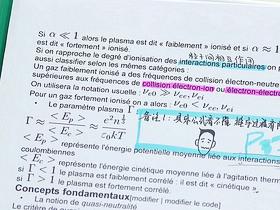 Si α ≪ 1 alors le plasma est dit « faiblement » ionisé et si α ≈ 1
est dit « fortement » ionisé.
Si on rappelle le degré d'ionisation des interactions particulières on
aussi classifier selon les mêmes catégories :
Un gaz faiblement ionisé a des fréquences de collision électron-neutre
supérieures aux fréquences de collision électron-ion ou électron-électro
On utilisera la notation usuelle : νe0 ≫ νei, νee
Pour un gaz fortement ionisé on a alors : νe0 < νee, νei
• Le paramètre plasma Γ
Γ ≈ <Ep> / <Ec> ≈ e²n^(1/3) / ε0kT
< Ep > représente l'énergie potentielle moyenne liée aux interactions
coulombiennes
< Ec > représente l'énergie cinétique moyenne liée à l'agitation thermi
si Γ < 1 le plasma est faiblement corrélé : il est dit « cinétique ».
si Γ > 1 le plasma est fortement corrélé.
Concepts fondamentaux [modifier | modifier le code]
• La notion de quasi-neutralité
Le critère de